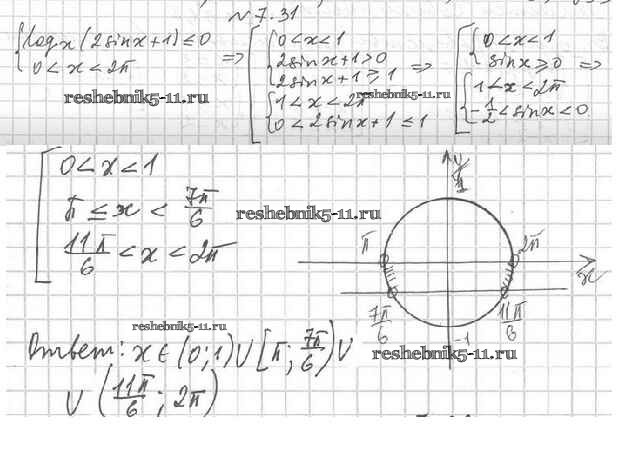 N 7.31
{ log x (2sinx+1) ≤ 0
0 < x < 2π
=> [ { 0 < x < 1
2sinx+1 > 0
2sinx+1 ≥ 1
{ 1 < x < 2π
0 < 2sinx+1 ≤ 1
=> [ { 0 < x < 1
sinx ≥ 0
{ 1 < x < 2π
-1/2 < sinx < 0
=>
reshebnik5-11.ru
reshebnik5-11.ru
[ 0 < x < 1
π ≤ x < 7π/6
11π/6 < x < 2π
reshebnik5-11.ru
y
1
π
2π
x
7π/6
11π/6
-1
reshebnik5-11.ru
Ответ: x ∈ (0; 1) ∪ [π; 7π/6) ∪
reshebnik5-11.ru
∪ (11π/6; 2π)